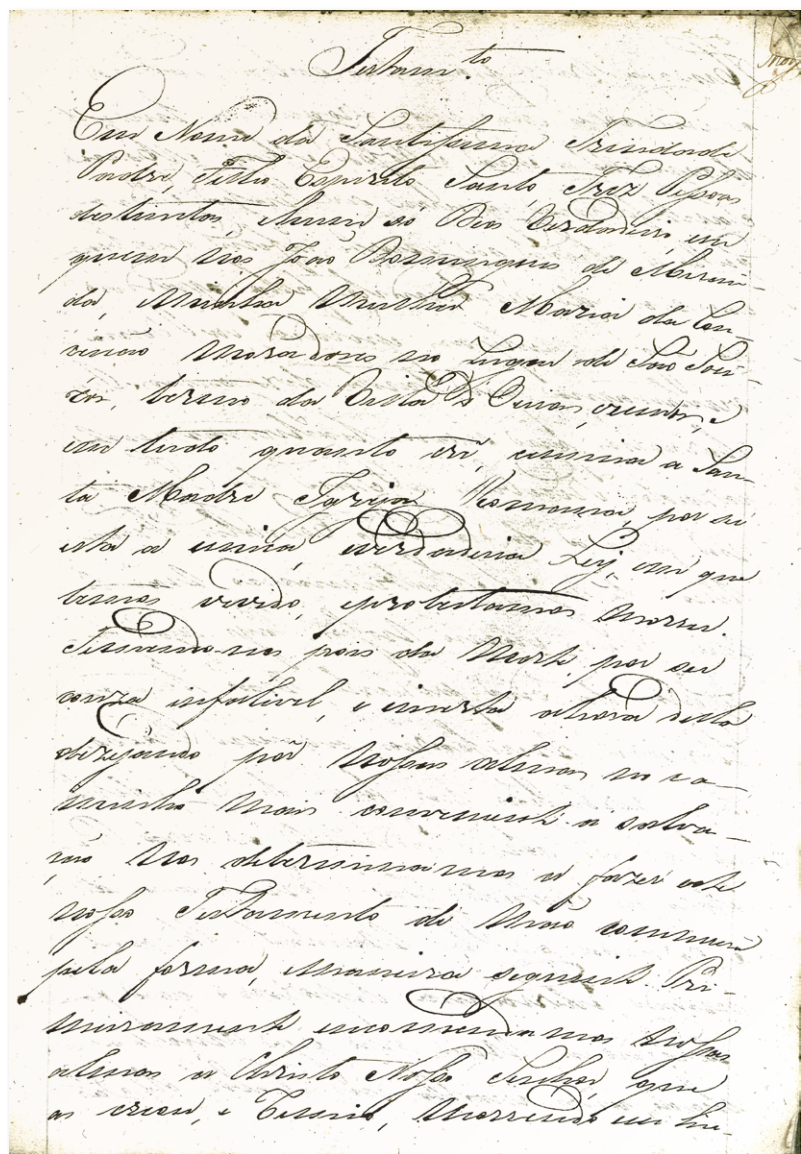 Testam.to
Em Nome da Santissima Trindade
Padre, Filho Espirito Santo, Trez Pessoas
destintas, ehum só Deos Verdadeiro, em
quem nos João Domingues de Miran-
da, eminha Mulher Maria da Con
ceicão moradores no Lugar de São Lou-
termo da Villa de cremos, e
em tudo quanto crê, eensina a San-
ta Madre Igreja Romana, por ser
esta a unica, everdadeira Ley, em que
temos vivido, eprotestamos morrer.
Temendo-nos pois da Morte, por ser
couza infalivel, e incerta ahora della
dezejando pôr Nossas almas no ca-
minho mais conveniente á salva-
ção, nos determinamos a fazer este
nosso Testamento de mão commum
pela forma, emaneira seguinte. Pri-
meiramente encomendamos nossas
almas a Christo Nosso Senhor, que
as creou, e Remio, morrendo em hu-